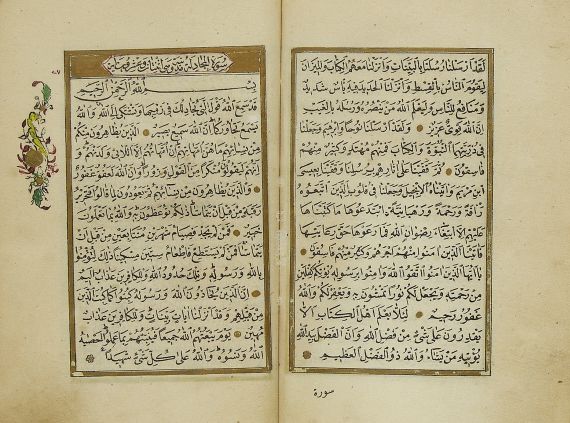 لَقَدْ اَرْسَلْنَا رُسُلَنَا بِالْبَيِّنَاتِ وَاَنْزَلْنَا مَعَهُمُ الْكِتَابَ وَالْمِيزَانَ
لِيَقُومَ النَّاسُ بِالْقِسْطِ وَاَنْزَلْنَا الْحَدِيدَ فِيهِ بَأْسٌ شَدِيدٌ
وَمَنَافِعُ لِلنَّاسِ وَلِيَعْلَمَ اللّٰهُ مَنْ يَنْصُرُهُ وَرُسُلَهُ بِالْغَيْبِ
اِنَّ اللّٰهَ قَوِيٌّ عَزِيزٌ وَلَقَدْ اَرْسَلْنَا نُوحًا وَاِبْرٰهِيمَ وَجَعَلْنَا
فِي ذُرِّيَّتِهِمَا النُّبُوَّةَ وَالْكِتَابَ فَمِنْهُمْ مُهْتَدٍ وَكَثِيرٌ مِنْهُمْ
فَاسِقُونَ ثُمَّ قَفَّيْنَا عَلٰى اٰثَارِهِمْ بِرُسُلِنَا وَقَفَّيْنَا بِعِيسَى
ابْنِ مَرْيَمَ وَاٰتَيْنَاهُ الْاِنْجِيلَ وَجَعَلْنَا فِي قُلُوبِ الَّذِينَ اتَّبَعُوهُ
رَأْفَةً وَرَحْمَةً وَرَهْبَانِيَّةً ابْتَدَعُوهَا مَا كَتَبْنَاهَا
عَلَيْهِمْ اِلَّا ابْتِغَاءَ رِضْوَانِ اللّٰهِ فَمَا رَعَوْهَا حَقَّ رِعَايَتِهَا
فَاٰتَيْنَا الَّذِينَ اٰمَنُوا مِنْهُمْ اَجْرَهُمْ وَكَثِيرٌ مِنْهُمْ فَاسِقُونَ
يَا اَيُّهَا الَّذِينَ اٰمَنُوا اتَّقُوا اللّٰهَ وَاٰمِنُوا بِرَسُولِهِ يُؤْتِكُمْ كِفْلَيْنِ
مِنْ رَحْمَتِهِ وَيَجْعَلْ لَكُمْ نُورًا تَمْشُونَ بِهِ وَيَغْفِرْ لَكُمْ وَاللّٰهُ
غَفُورٌ رَحِيمٌ لِئَلَّا يَعْلَمَ اَهْلُ الْكِتَابِ اَلَّا
يَقْدِرُونَ عَلٰى شَيْءٍ مِنْ فَضْلِ اللّٰهِ وَاَنَّ الْفَضْلَ بِيَدِ اللّٰهِ
يُؤْتِيهِ مَنْ يَشَاءُ وَاللّٰهُ ذُو الْفَضْلِ الْعَظِيمِ
سورة
سورة المجادلة مدنية وهي اثنتان وعشرون اية
بِسْمِ اللّٰهِ الرَّحْمٰنِ الرَّحِيمِ
قَدْ سَمِعَ اللّٰهُ قَوْلَ الَّتِي تُجَادِلُكَ فِي زَوْجِهَا وَتَشْتَكِي اِلَى اللّٰهِ وَاللّٰهُ
يَسْمَعُ تَحَاوُرَكُمَا اِنَّ اللّٰهَ سَمِيعٌ بَصِيرٌ اَلَّذِينَ يُظَاهِرُونَ مِنْكُمْ
مِنْ نِسَائِهِمْ مَا هُنَّ اُمَّهَاتِهِمْ اِنْ اُمَّهَاتُهُمْ اِلَّا اللَّائِي وَلَدْنَهُمْ وَ
اِنَّهُمْ لَيَقُولُونَ مُنْكَرًا مِنَ الْقَوْلِ وَزُورًا وَاِنَّ اللّٰهَ لَعَفُوٌّ غَفُورٌ
وَالَّذِينَ يُظَاهِرُونَ مِنْ نِسَائِهِمْ ثُمَّ يَعُودُونَ لِمَا قَالُوا فَتَحْرِيرُ
رَقَبَةٍ مِنْ قَبْلِ اَنْ يَتَمَاسَّا ذٰلِكُمْ تُوعَظُونَ بِهِ وَاللّٰهُ بِمَا تَعْمَلُونَ
خَبِيرٌ فَمَنْ لَمْ يَجِدْ فَصِيَامُ شَهْرَيْنِ مُتَتَابِعَيْنِ مِنْ قَبْلِ اَنْ
يَتَمَاسَّا فَمَنْ لَمْ يَسْتَطِعْ فَاِطْعَامُ سِتِّينَ مِسْكِينًا ذٰلِكَ لِتُؤْمِنُوا
بِاللّٰهِ وَرَسُولِهِ وَتِلْكَ حُدُودُ اللّٰهِ وَلِلْكَافِرِينَ عَذَابٌ اَلِيمٌ
اِنَّ الَّذِينَ يُحَادُّونَ اللّٰهَ وَرَسُولَهُ كُبِتُوا كَمَا كُبِتَ الَّذِينَ
مِنْ قَبْلِهِمْ وَقَدْ اَنْزَلْنَا اٰيَاتٍ بَيِّنَاتٍ وَلِلْكَافِرِينَ عَذَابٌ
مُهِينٌ يَوْمَ يَبْعَثُهُمُ اللّٰهُ جَمِيعًا فَيُنَبِّئُهُمْ بِمَا عَمِلُوا اَحْصٰيهُ
اللّٰهُ وَنَسُوهُ وَاللّٰهُ عَلٰى كُلِّ شَيْءٍ شَهِيدٌ